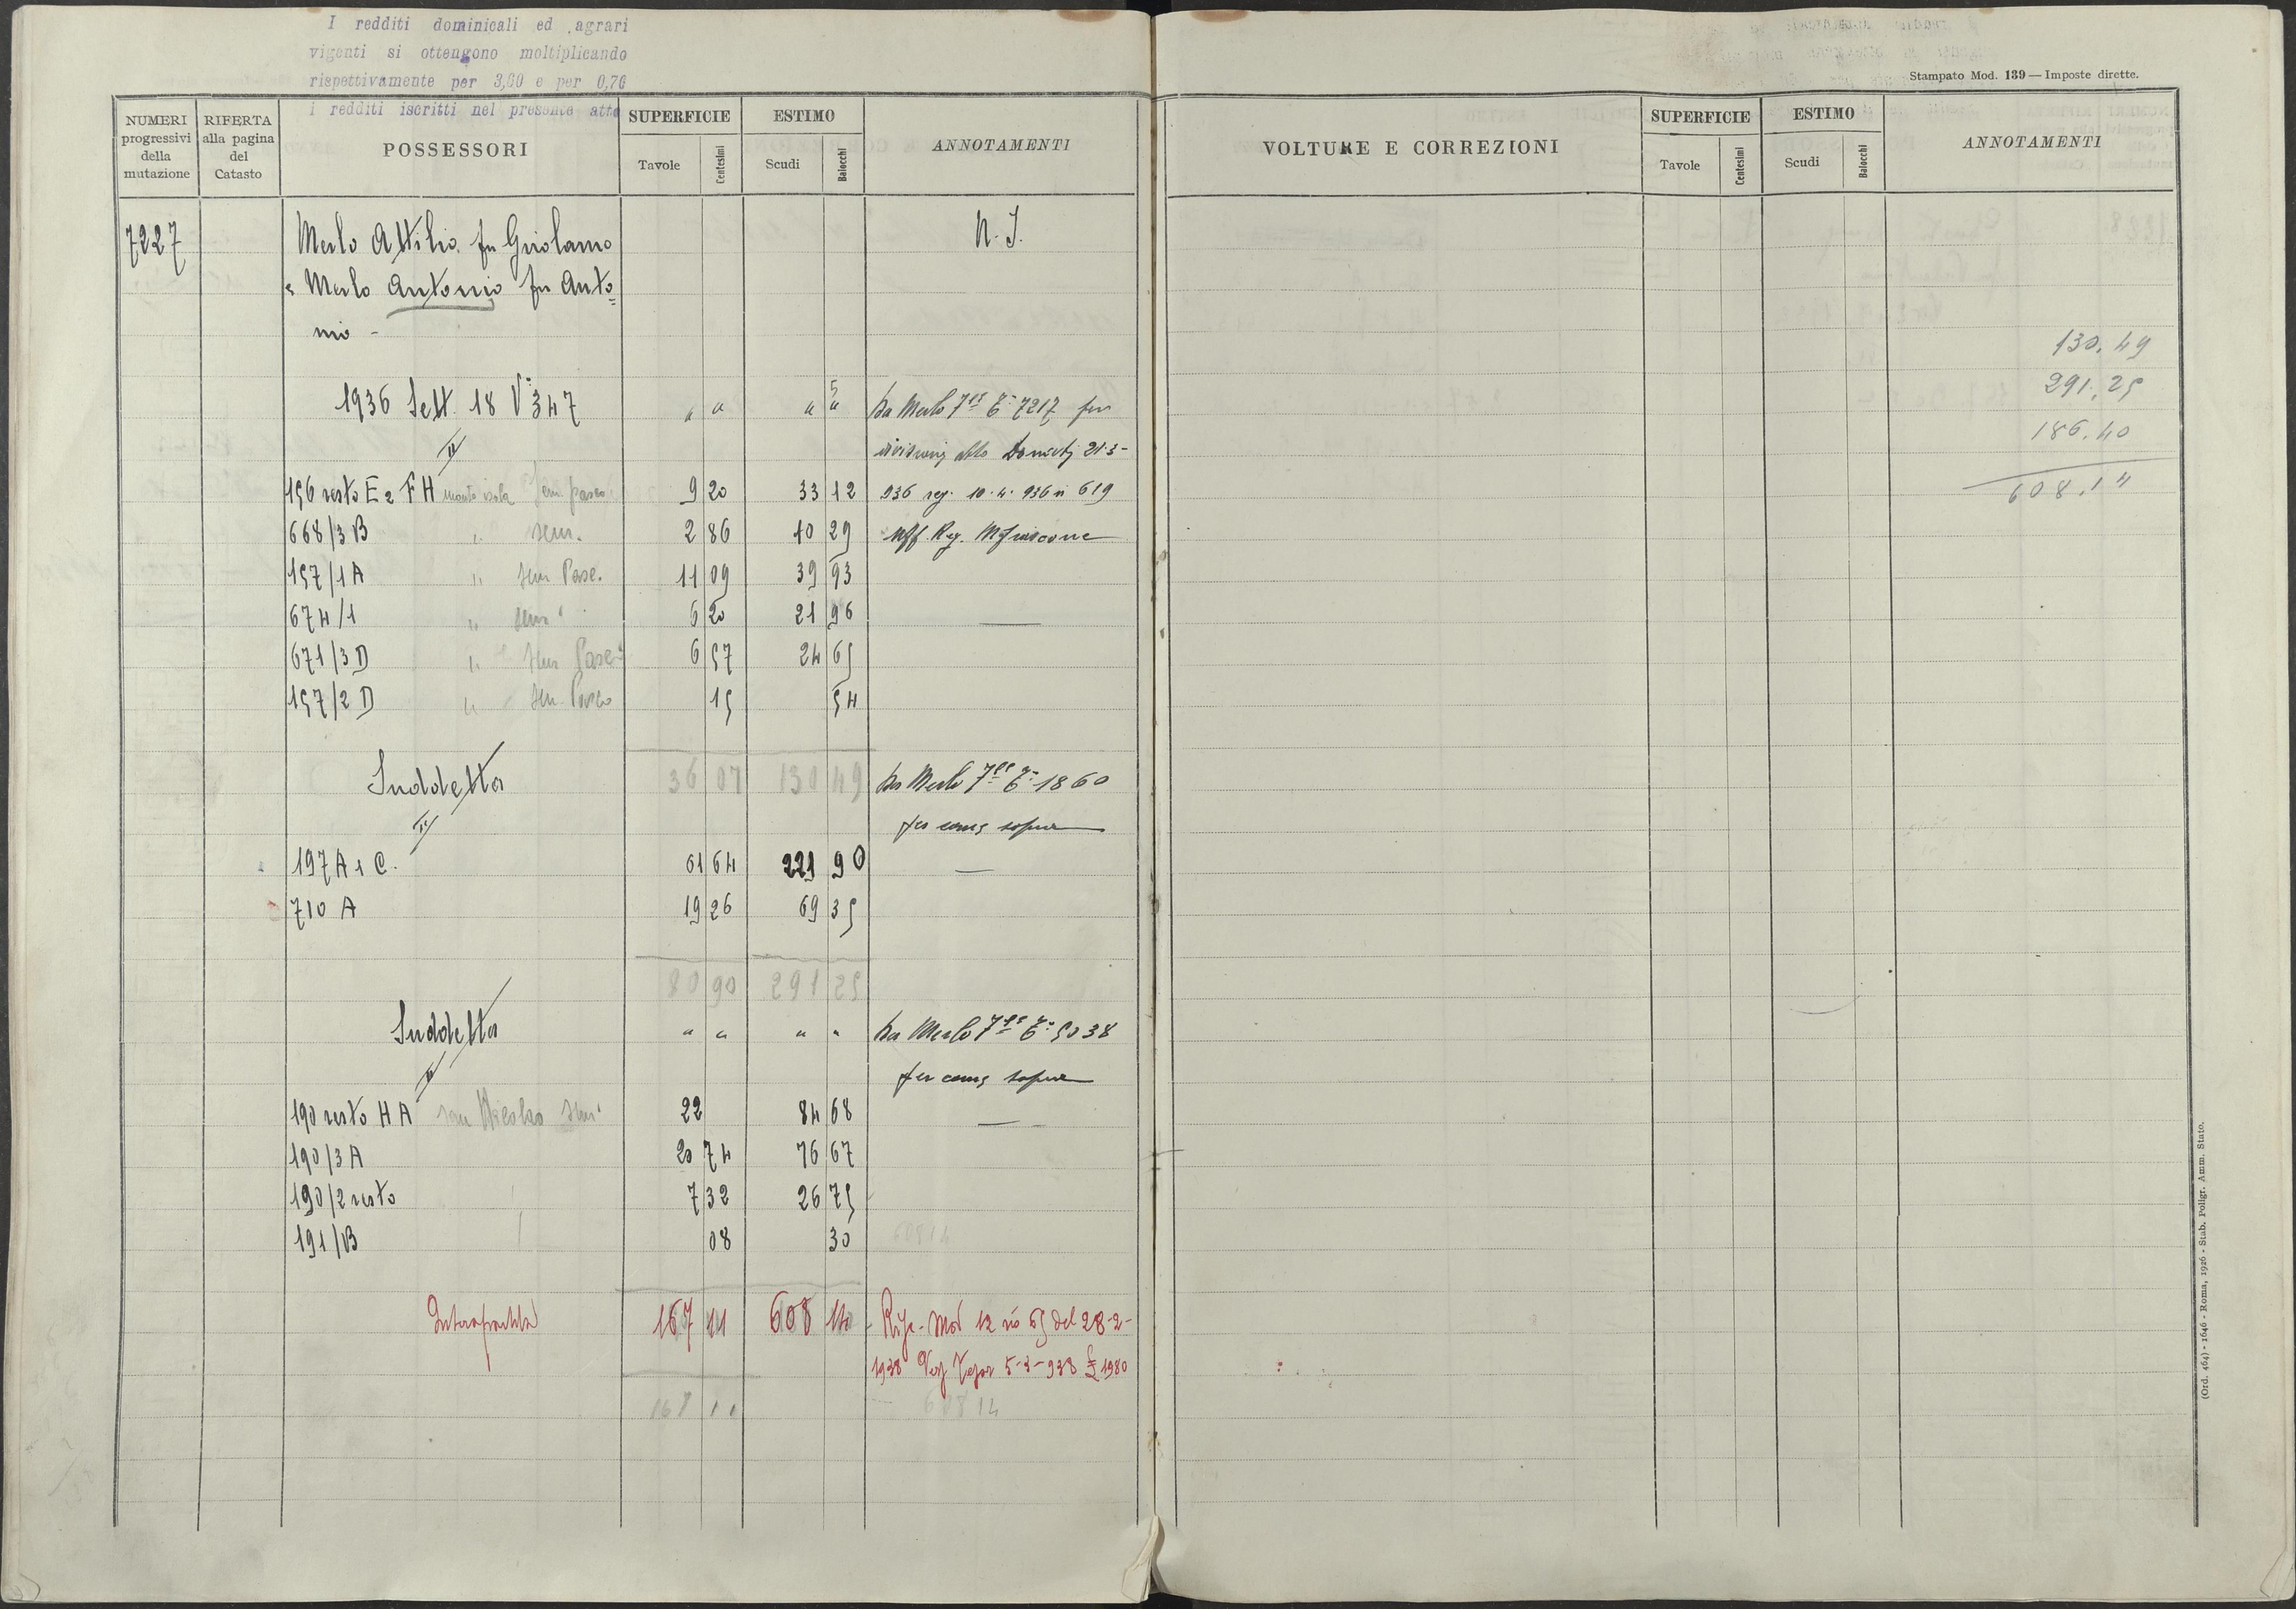 I redditi dominicali ed agrari
vigenti si ottengono moltiplicando
rispettivamente per 3,60 e per 0,76
i redditi iscritti nel presente atto
Stampato Mod. 139 — Imposte dirette.
NUMERI progressivi della mutazione
RIFERTA alla pagina del Catasto
POSSESSORI
SUPERFICIE
Tavole Centesimi
ESTIMO
Scudi Baiocchi
ANNOTAMENTI
7227 Merlo Attilio fu Girolamo N. I.
e Merlo Antonio fu Anto=
nio -
1936 Sett. 18 V° 347 " " " 5 " Da Merlo 7217 per
divisioni atto 21-3-
156 resto E 2 F H monte isola Sem. pasco 9 20 33 12 936 reg. 10. 4. 936 n 619
668/3 B " sem. 2 86 10 29 Uff. Reg. Mfiascone
157/1 A " Sem Pasc. 11 09 39 93
674/1 " Sem 6 20 21 96 —
671/3 D " Sem Pasc 6 57 24 65
157/2 D " Sem. Pasco 15 54
Suddetta 36 07 130 49 Da Merlo 1860
per come sopra
197 A 1 C. 61 64 221 90 —
710 A 19 26 69 35
80 90 291 25
Suddetta " " " " Da Merlo 5038
per come sopra
190 resto H A san Nicolao Sem 22 84 68 —
190/3 A 20 74 76 67
190/2 resto 7 32 26 75
191/B 08 30 60814
Intera partita 167 11 608 14 Rife. Mod 12 no 65 del 28-2-
1938 5-3-938 £ 1980
167 11 608 14
VOLTURE E CORREZIONI
SUPERFICIE
Tavole Centesimi
ESTIMO
Scudi Baiocchi
ANNOTAMENTI
130.49
291.25
186.40
608.14
(Ord. 464) - 1646 - Roma, 1926 - Stab. Poligr. Amm. Stato.